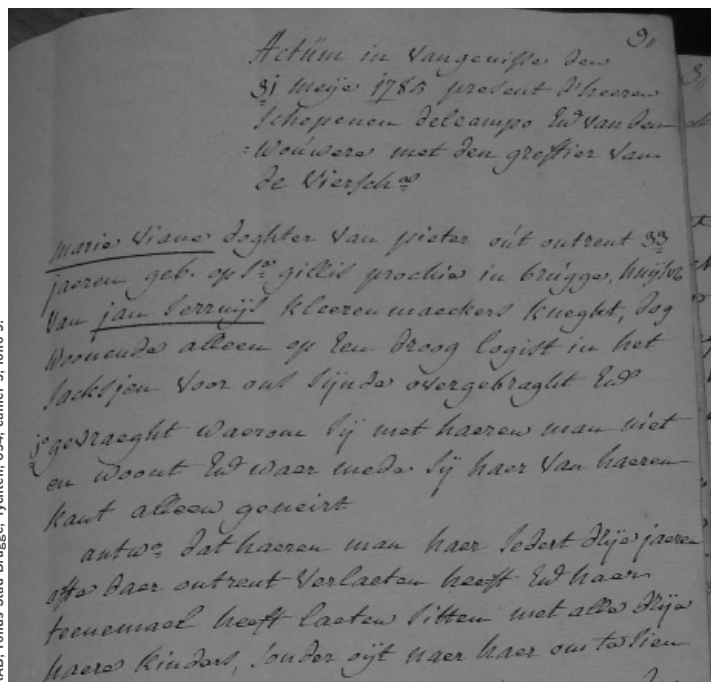 9
Actum in vangenisse den
31 meije 1785 present d'heeren
schepenen delcampo end van den
wouwere met den greffier van
de vierschre
marie viane doghter van pieter out ontrent 33
jaeren geb. op Ste gillis prochie in brugge, huijsvr
van jan serruijs kleermaeckers kneght, dog
woonende alleen op een droog logist in het
sacksjen voor ons sijnde overgebraght end
1o gevraeght waerom sij met haeren man niet
en woont end waer mede sij haer van haeren
kant alleen geneirt
antwo dat haeren man haer sedert drije jaeren
ofte daer ontrent verlaeten heeft end haer
teenemael heeft laeten sitten met alle drije
haere kinders, sonder oijt naer haer om te sien
RAB, Fonds Stad Brugge, Tydnren, 634, cahier 5, folio 9.